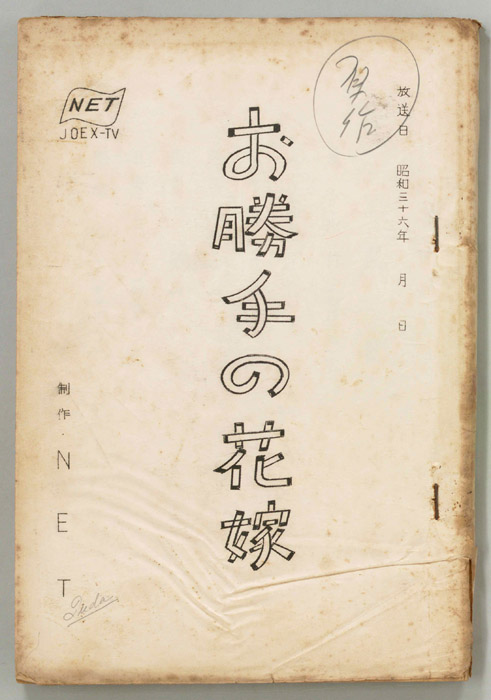 放送日 昭和三十六年 月 日
NET
JOEX-TV
お勝手の花嫁
制作・NET